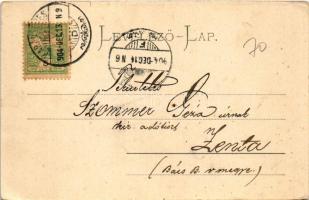 LEVELEZŐ-LAP.
70
904 DEC 13 N 9
904 DEC 14 N 6
Szommer Géza úrnak
kir. adótiszt
Zenta
(Bács B. v megye.)